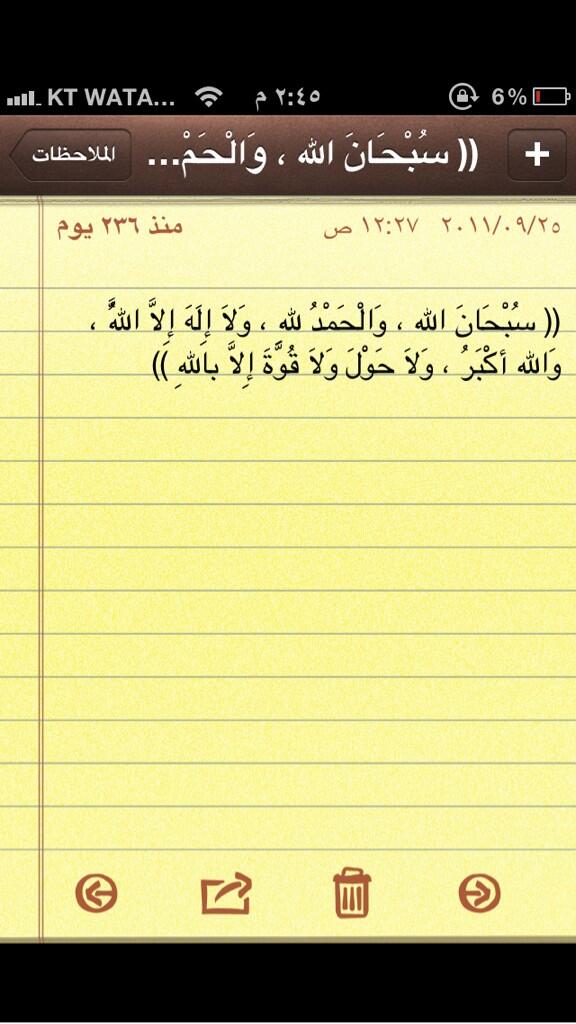 KT WATA... ٢:٤٥ م 6%
الملاحظات (( سُبْحَانَ الله ، وَالْحَمْ... +
منذ ٢٣٦ يوم ٢٠١١/٠٩/٢٥ ١٢:٢٧ ص
(( سُبْحَانَ الله ، وَالْحَمْدُ لله ، وَلاَ إِلَهَ إِلاَّ اللهُ ،
وَالله أَكْبَرُ ، وَلاَ حَوْلَ وَلاَ قُوَّةَ إِلاَّ بِاللهِ ))